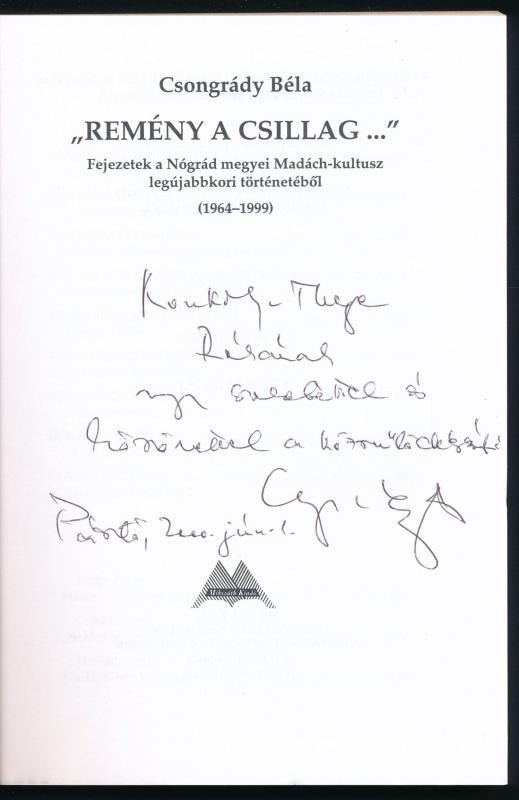 Csongrády Béla
„REMÉNY A CSILLAG ...”
Fejezetek a Nógrád megyei Madách-kultusz
legújabbkori történetéből
(1964–1999)
Konkoly-Thege
nagy szeretettel és
köszönettel a közreműködésért
Pásztó, 2000. jún. 1.
Mikszáth Kiadó